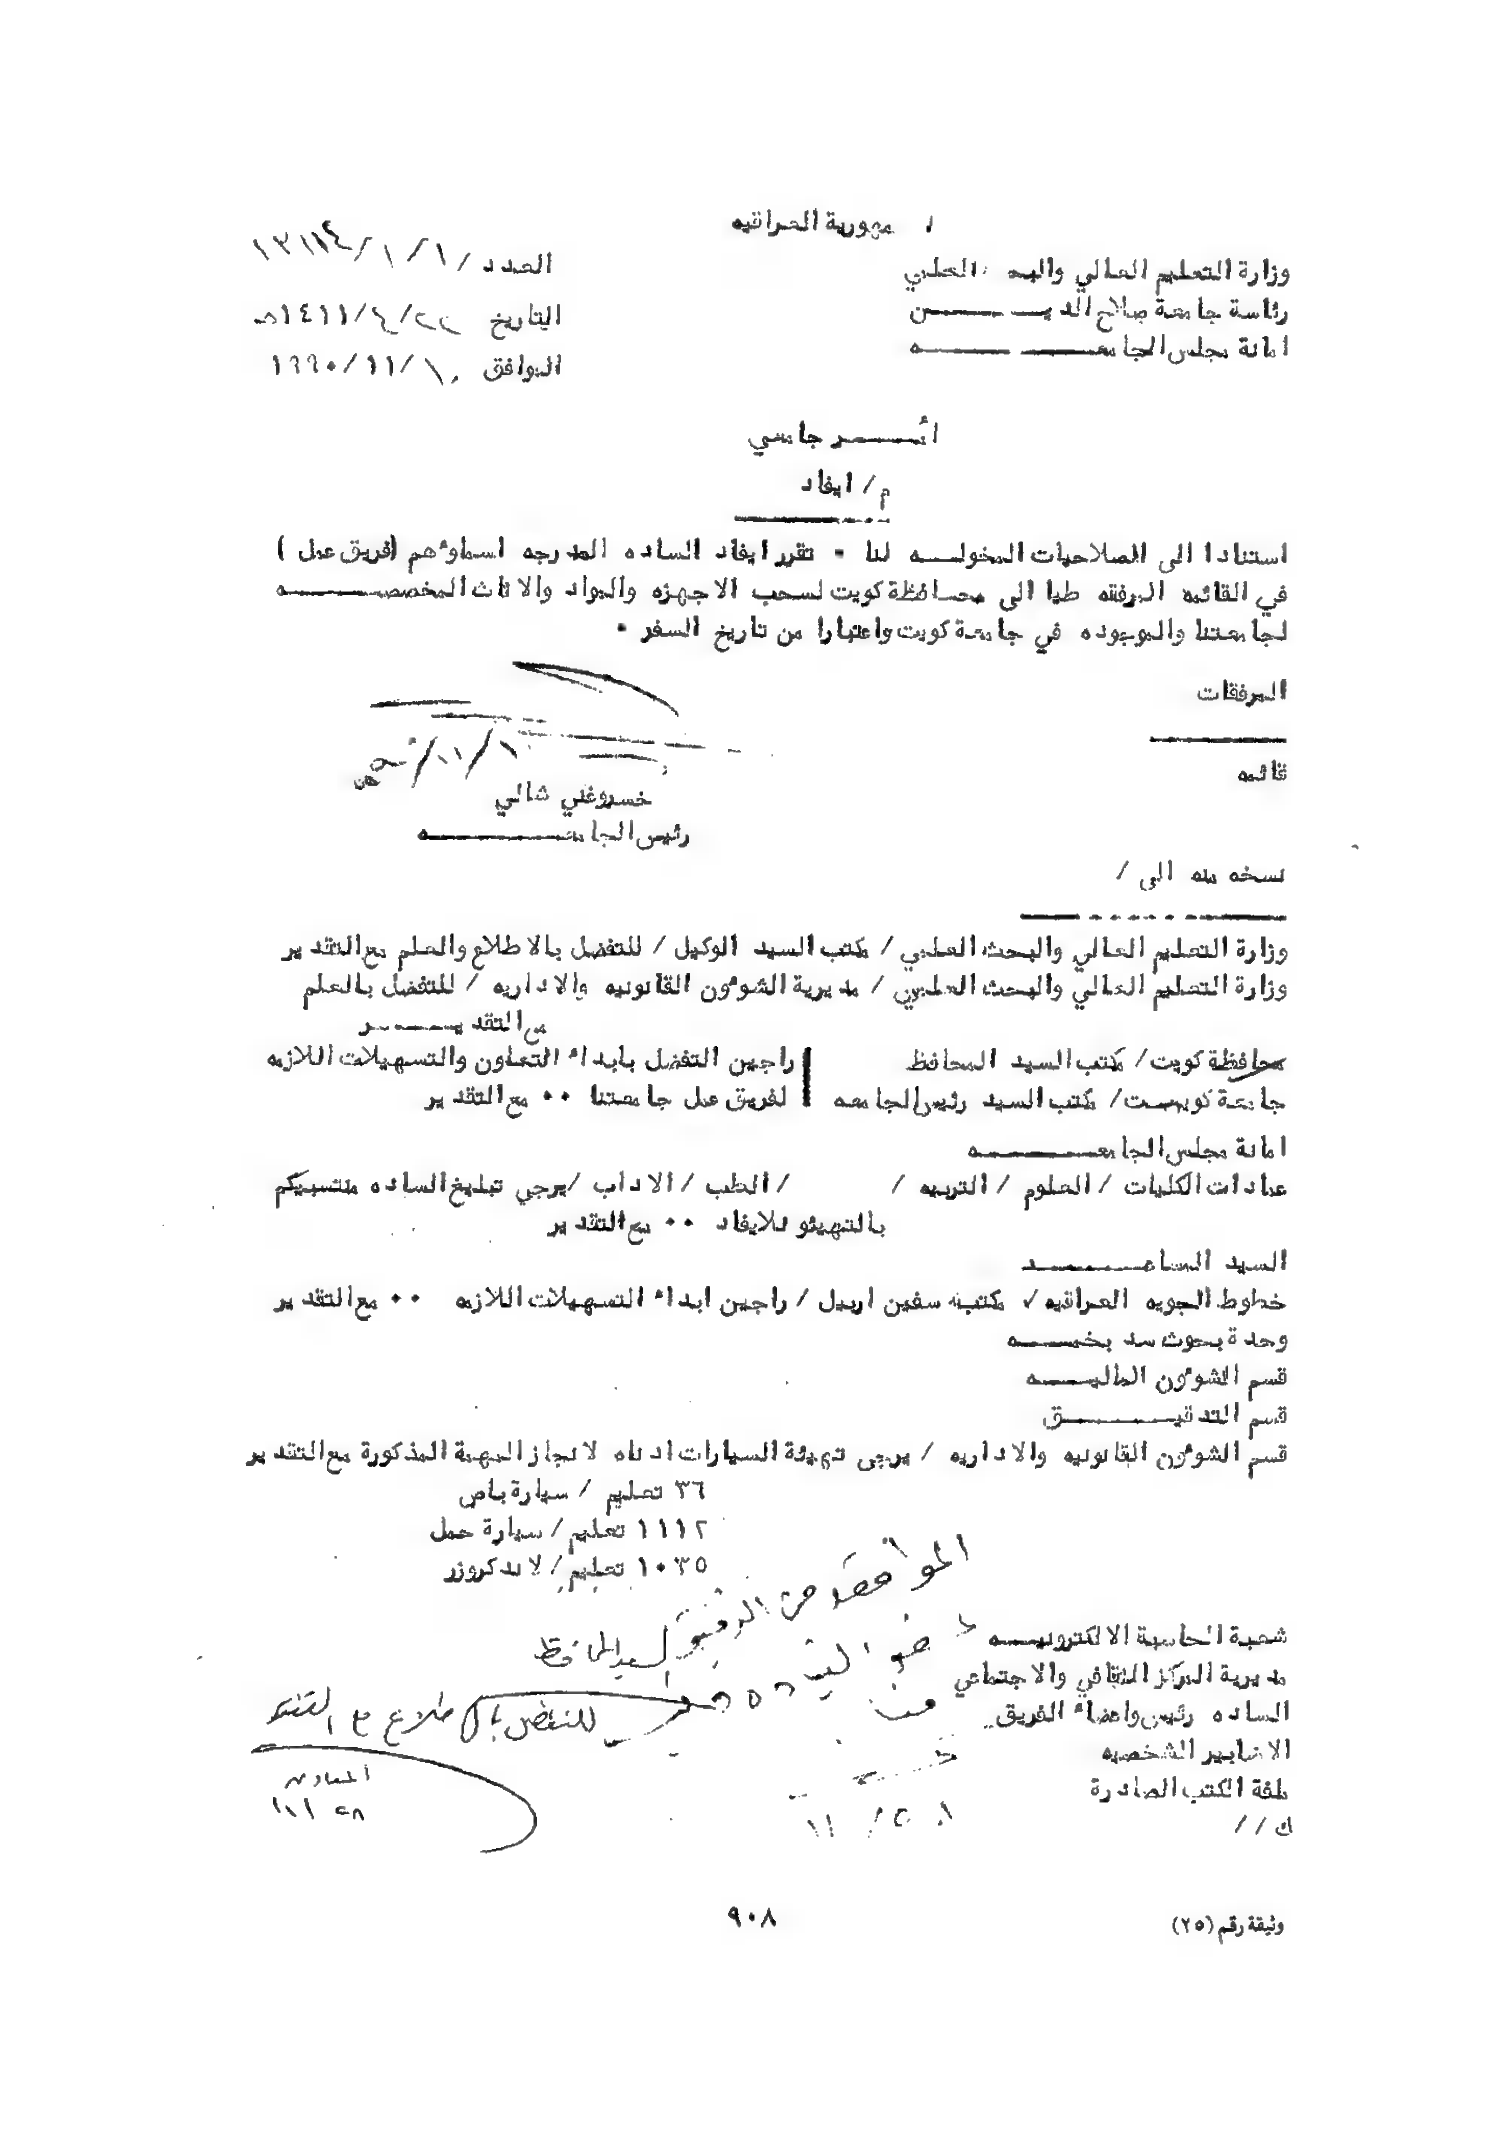 مهورية العراقيه
وزارة التعليم العالي والبحـ العلمي
رئاسة جامعة صلاح الديـــــن
امانة مجلس الجامعـــــــه
العدد /
التاريخ ٢٢/٤/١٤١١هـ
الموافق ١٠/١١/١٩٩٠
أمـــــر جامعي
م/ ايفاد
استنادا الى الصلاحيات المخولـــه لنا ٠ تقرر ايفاد الساده المدرجه اسماوءهم (فريق عمل )
في القائمه المرفقه طيا الى محـافظة كويت لسحب الاجهزه والمواد والاثاث المخصصـــــه
لجامعتنا والموجوده في جامعة كويت واعتبارا من تاريخ السفر ٠
المرفقات
قائمه
١٠/١١/
خسروغني شالي
رئيس الجامعـــــــه
نسخه منه الى /
وزارة التعليم العالي والبحث العلمي / مكتب السيد الوكيل / للتفضل بالاطلاع والعلم مع التقدير
وزارة التعليم العالي والبحث العلمي / مديرية الشوءون القانونيه والاداريه / للتفضل بالعلم
مع التقديـــــر
محافظة كويت/ مكتب السيد المحافظ راجين التفضل بابداء التعاون والتسهيلات اللازمه
جامعة كويـت/ مكتب السيد رئيس الجامعه لفريق عمل جامعتنا ٠٠ مع التقدير
امانة مجلس الجامعـــــــه
عمادات الكليات / العلوم / التربيه / / الطب / الاداب /يرجي تبليغ الساده منتسبيكم
بالتهيئو للايفاد ٠٠ مع التقدير
السيد المساعـــــــد
خطوط الجويه العراقيه / مكتبه سفين اربيل / راجين ابداء التسهيلات اللازمه ٠٠ مع التقدير
وحدة بحوث سد بخمـــه
قسم الشوءون الماليـــه
قسم التدقيـــــــق
قسم الشوءون القانونيه والاداريه / يرجى تهيئة السيارات ادناه لانجاز المهمة المذكورة مع التقدير
٣٦ تعليم / سيارة باص
١١١٢ تعليم / سيارة حمل
١٠٣٥ تعليم / لاندكروزر
شعبة الحاسبة الالكترونيـــه
مديرية المركز الثقافي والاجتماعي
الساده رئيس واعضاء الفريق
الاضابير الشخصيه
ملفة الكتب الصادرة
ك //
السيد المحافظ
للتفضل بالاطلاع مع التقدير
وثيقة رقم (٢٥)
٩٠٨